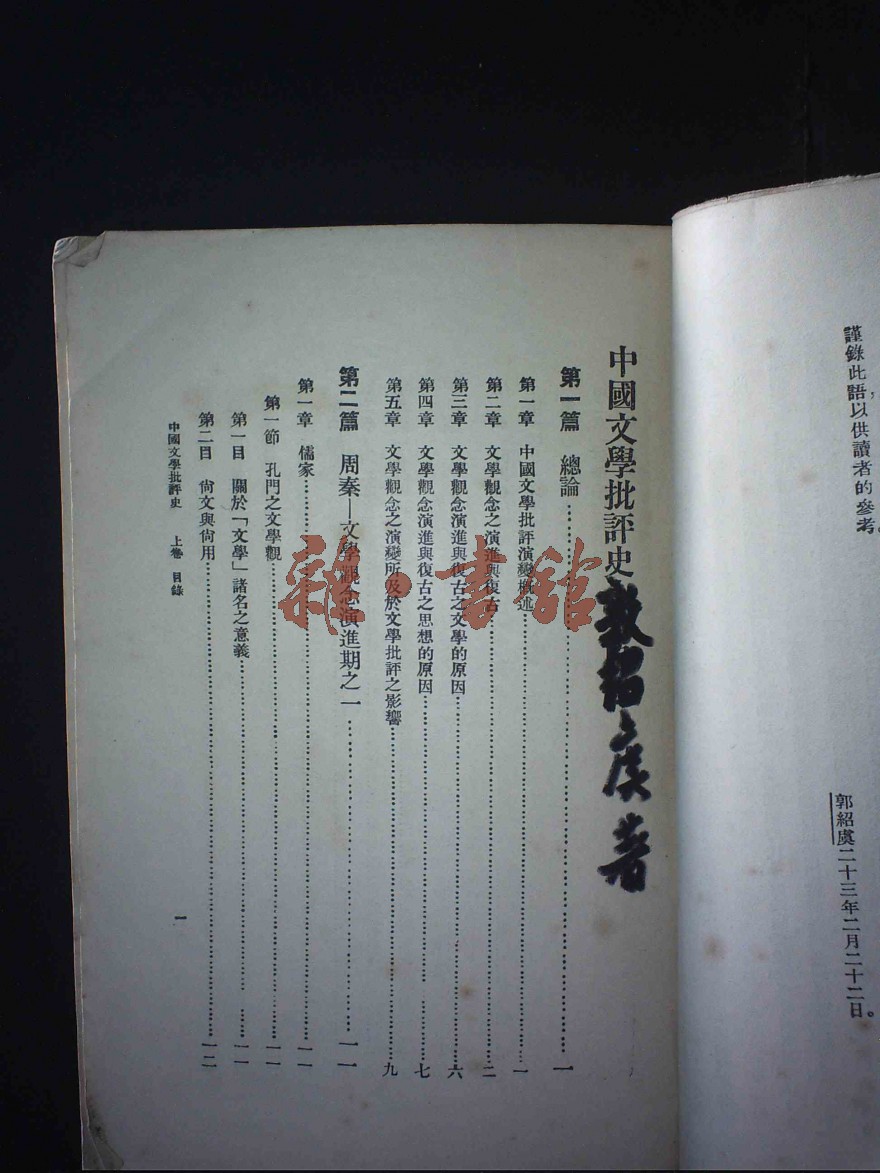 謹錄此語，以供讀者的參考。
郭紹虞二十三年二月二十二日。
中國文學批評史
郭紹虞著
第一篇 總論……一
第一章 中國文學批評演變概述……一
第二章 文學觀念之演進與復古……二
第三章 文學觀念演進與復古之文學的原因……六
第四章 文學觀念演進與復古之思想的原因……七
第五章 文學觀念之演變所及於文學批評之影響……九
第二篇 周秦—文學觀念演進期之一……一一
第一章 儒家……一一
第一節 孔門之文學觀……一一
第一目 關於「文學」諸名之意義……一一
第二目 尙文與尙用……一二
中國文學批評史 上卷 目錄
一
雜·書館